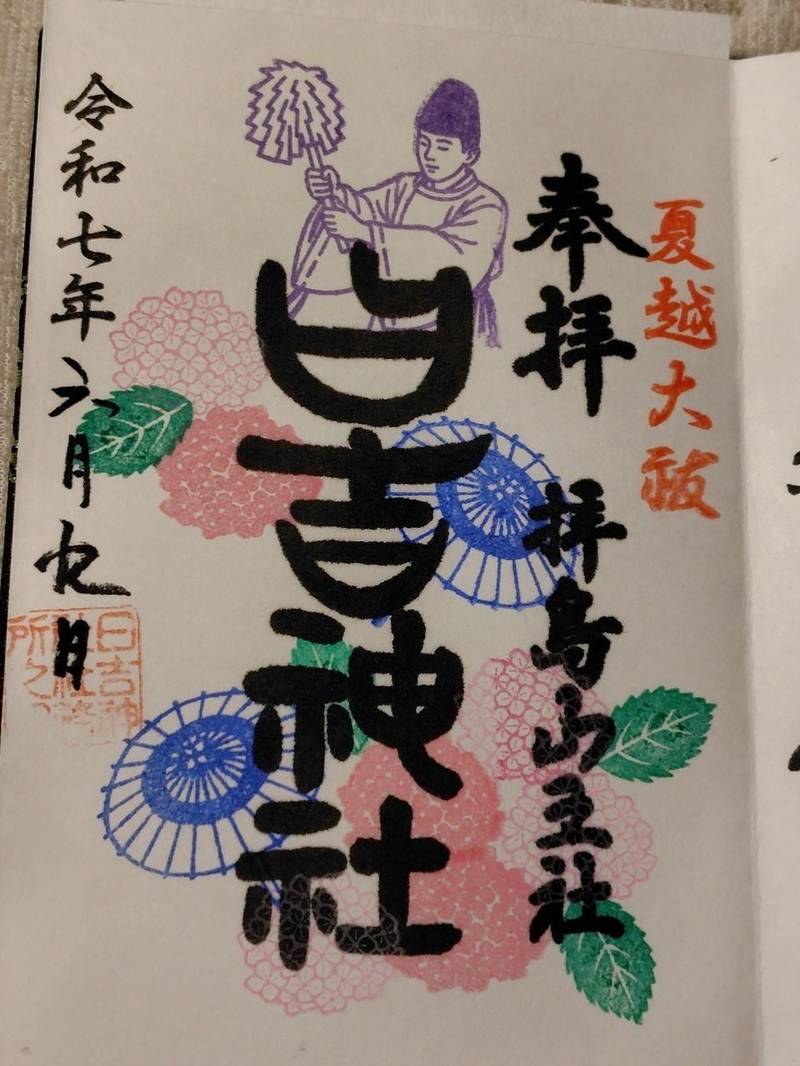 夏越大祓
奉拝
拝島山王社
日吉神社
令和七年六月九日
日吉神
社社務
所之印